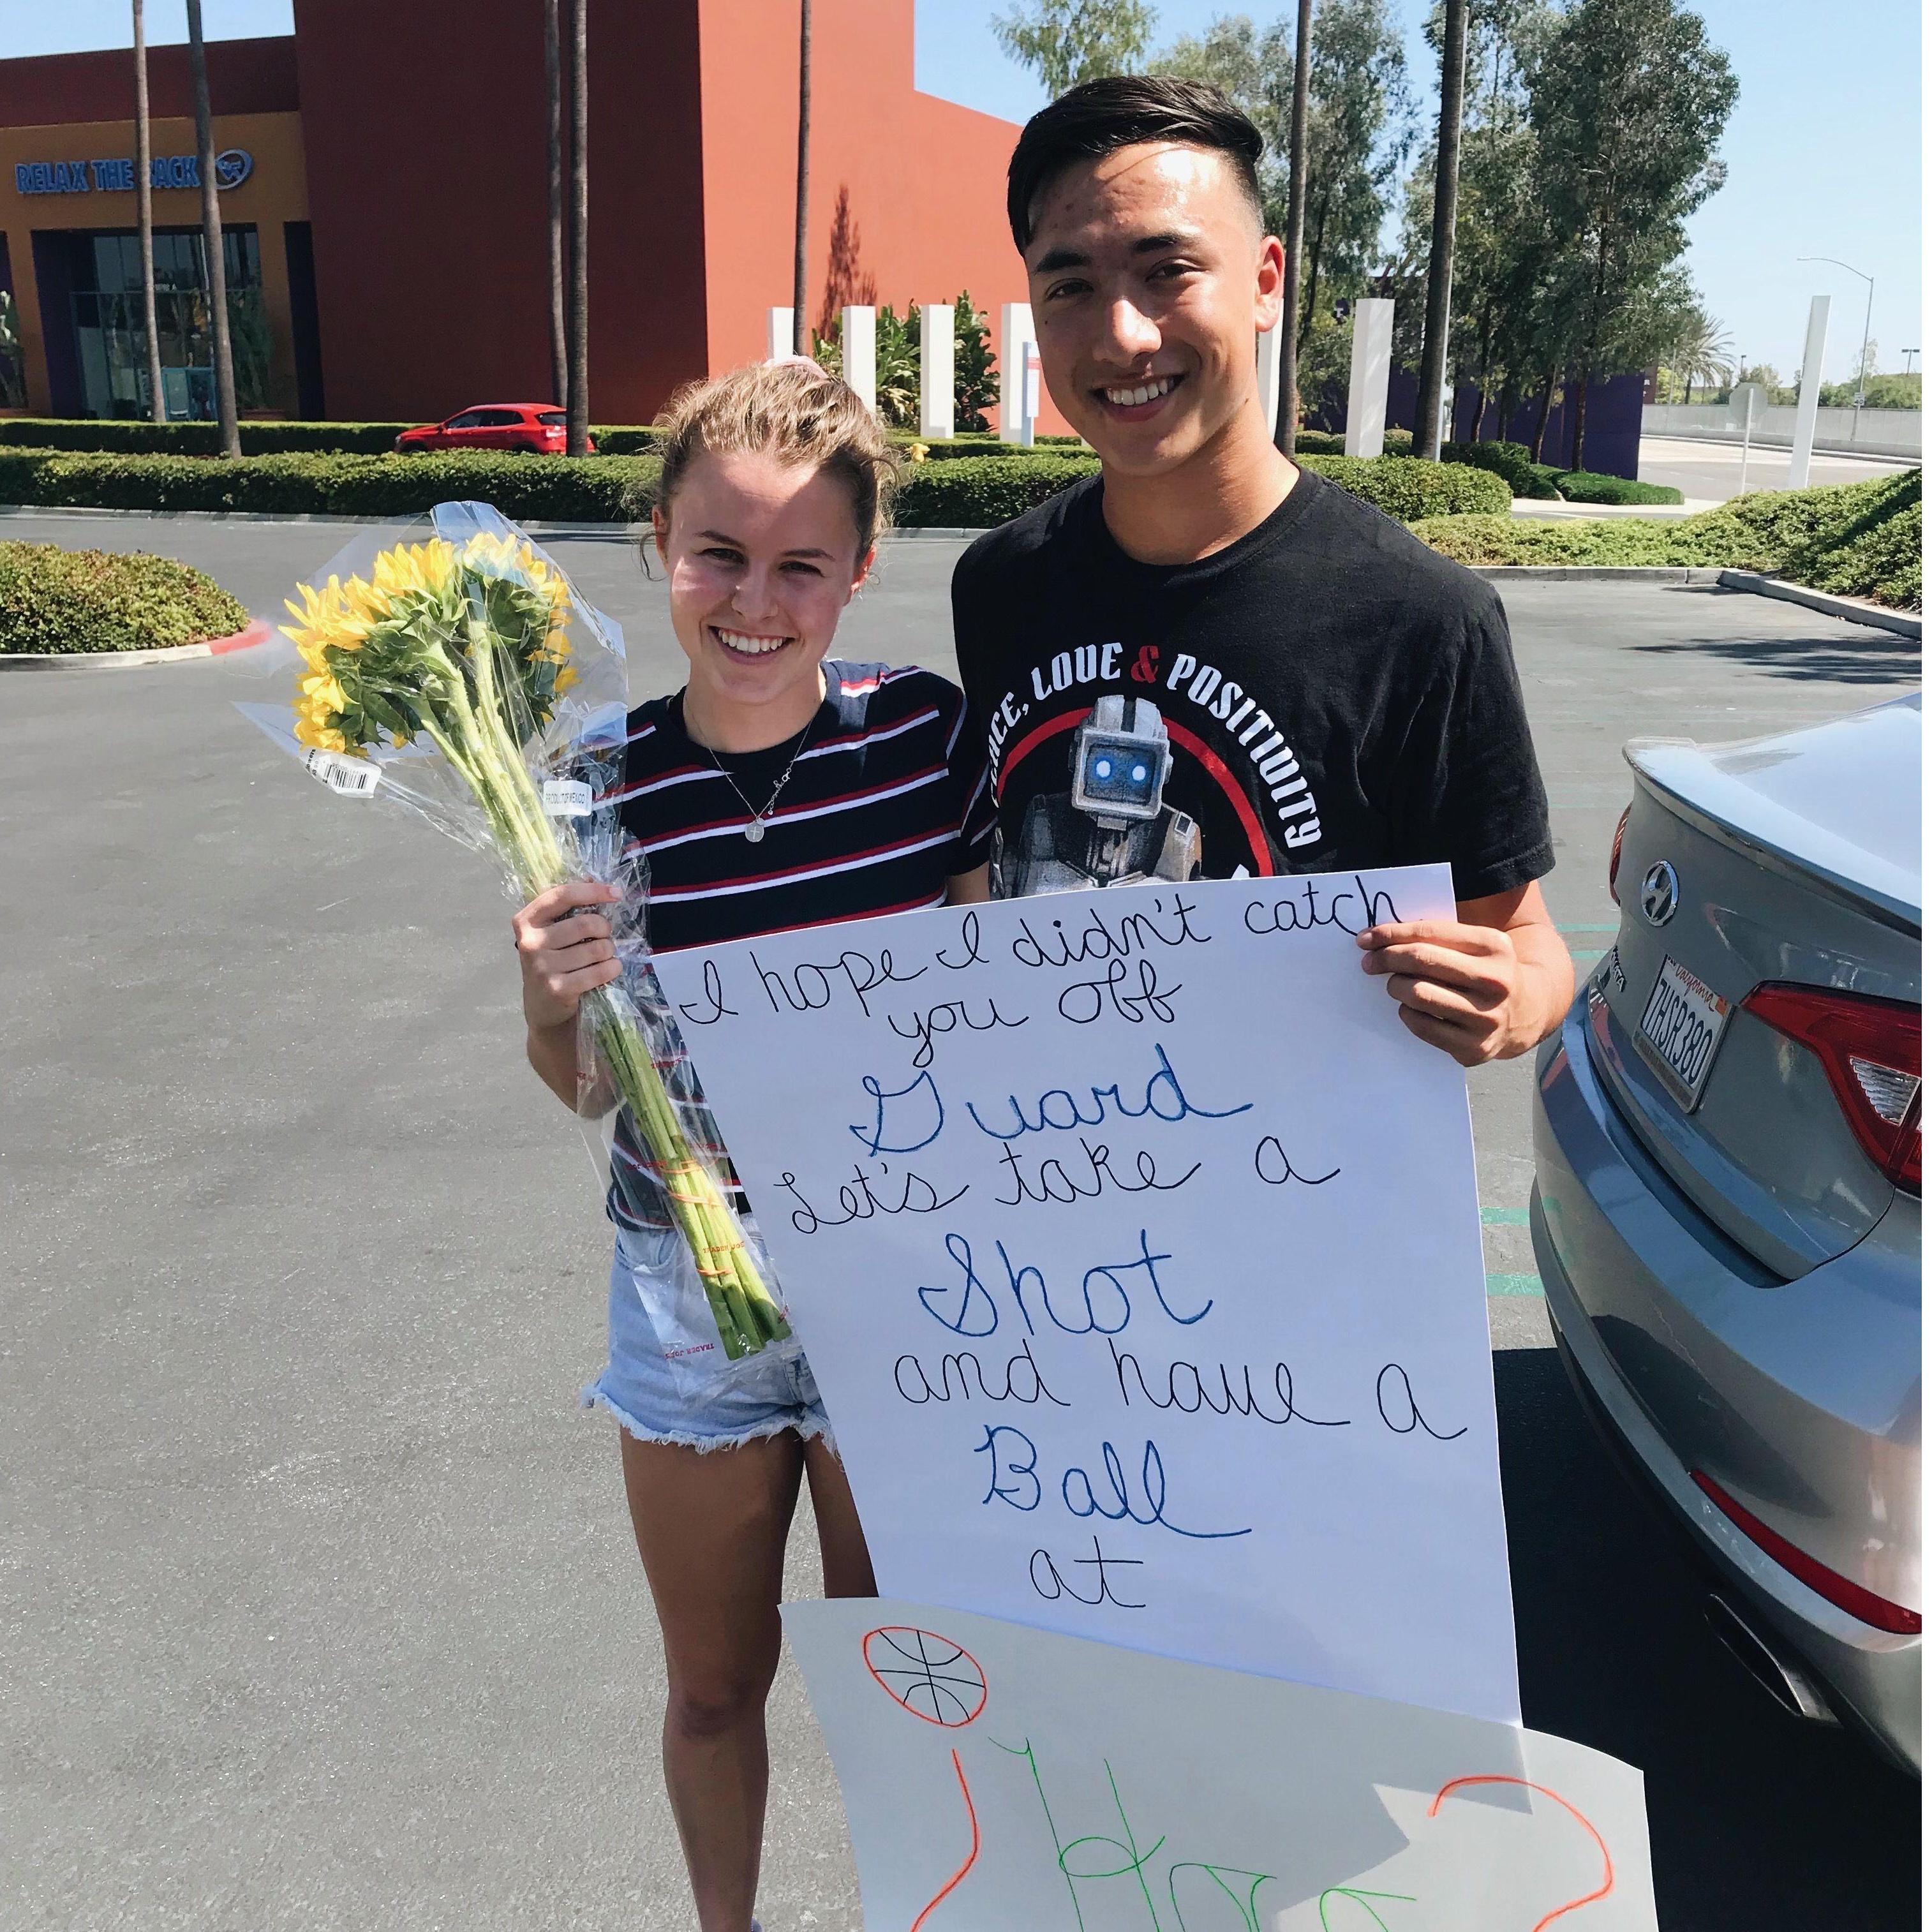 RELAX THE BACK
PEACE, LOVE & POSITIVITY
PRODUCT OF MEXICO
I hope I didn't catch
you off
Guard
Let's take a
Shot
and have a
Ball
at
TRADER JOE
7HSR380